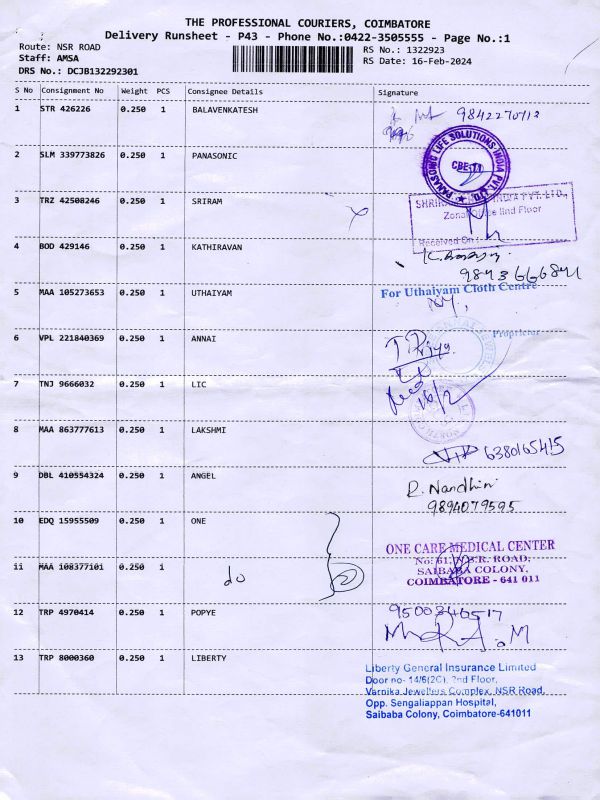 THE PROFESSIONAL COURIERS, COIMBATORE
Delivery Runsheet - P43 - Phone No.:0422-3505555 - Page No.:1
Route: NSR ROAD
RS No.: 1322923
Staff: AMSA
RS Date: 16-Feb-2024
DRS No.: DCJB132292301
S No Consignment No Weight PCS Consignee Details Signature
1 STR 426226 0.250 1 BALAVENKATESH 9842270713
2 SLM 339773826 0.250 1 PANASONIC
PANASONIC LIFE SOLUTIONS INDIA PVT. LTD.
CBE-11
3 TRZ 42508246 0.250 1 SRIRAM
INDIA PVT. LTD.,
IInd Floor
Received On :
4 BOD 429146 0.250 1 KATHIRAVAN
9843666841
5 MAA 105273653 0.250 1 UTHAIYAM For Uthaiyam Cloth Centre
Proprietor
6 VPL 221840369 0.250 1 ANNAI T. Priya
7 TNJ 9666032 0.250 1 LIC
16/2
8 MAA 863777613 0.250 1 LAKSHMI 6380165415
9 DBL 410554324 0.250 1 ANGEL R. Nandhini
9894079595
10 EDQ 15955509 0.250 1 ONE
ONE CARE MEDICAL CENTER
No: 61, N.S.R. ROAD,
11 MAA 108377101 0.250 1 do
SAIBABA COLONY,
COIMBATORE - 641 011
12 TRP 4970414 0.250 1 POPYE 9500340517
13 TRP 8000360 0.250 1 LIBERTY
Liberty General Insurance Limited
Door no- 14/6(2C), 2nd Floor,
Varnika Jewellers Complex, NSR Road,
Opp. Sengaliappan Hospital,
Saibaba Colony, Coimbatore-641011